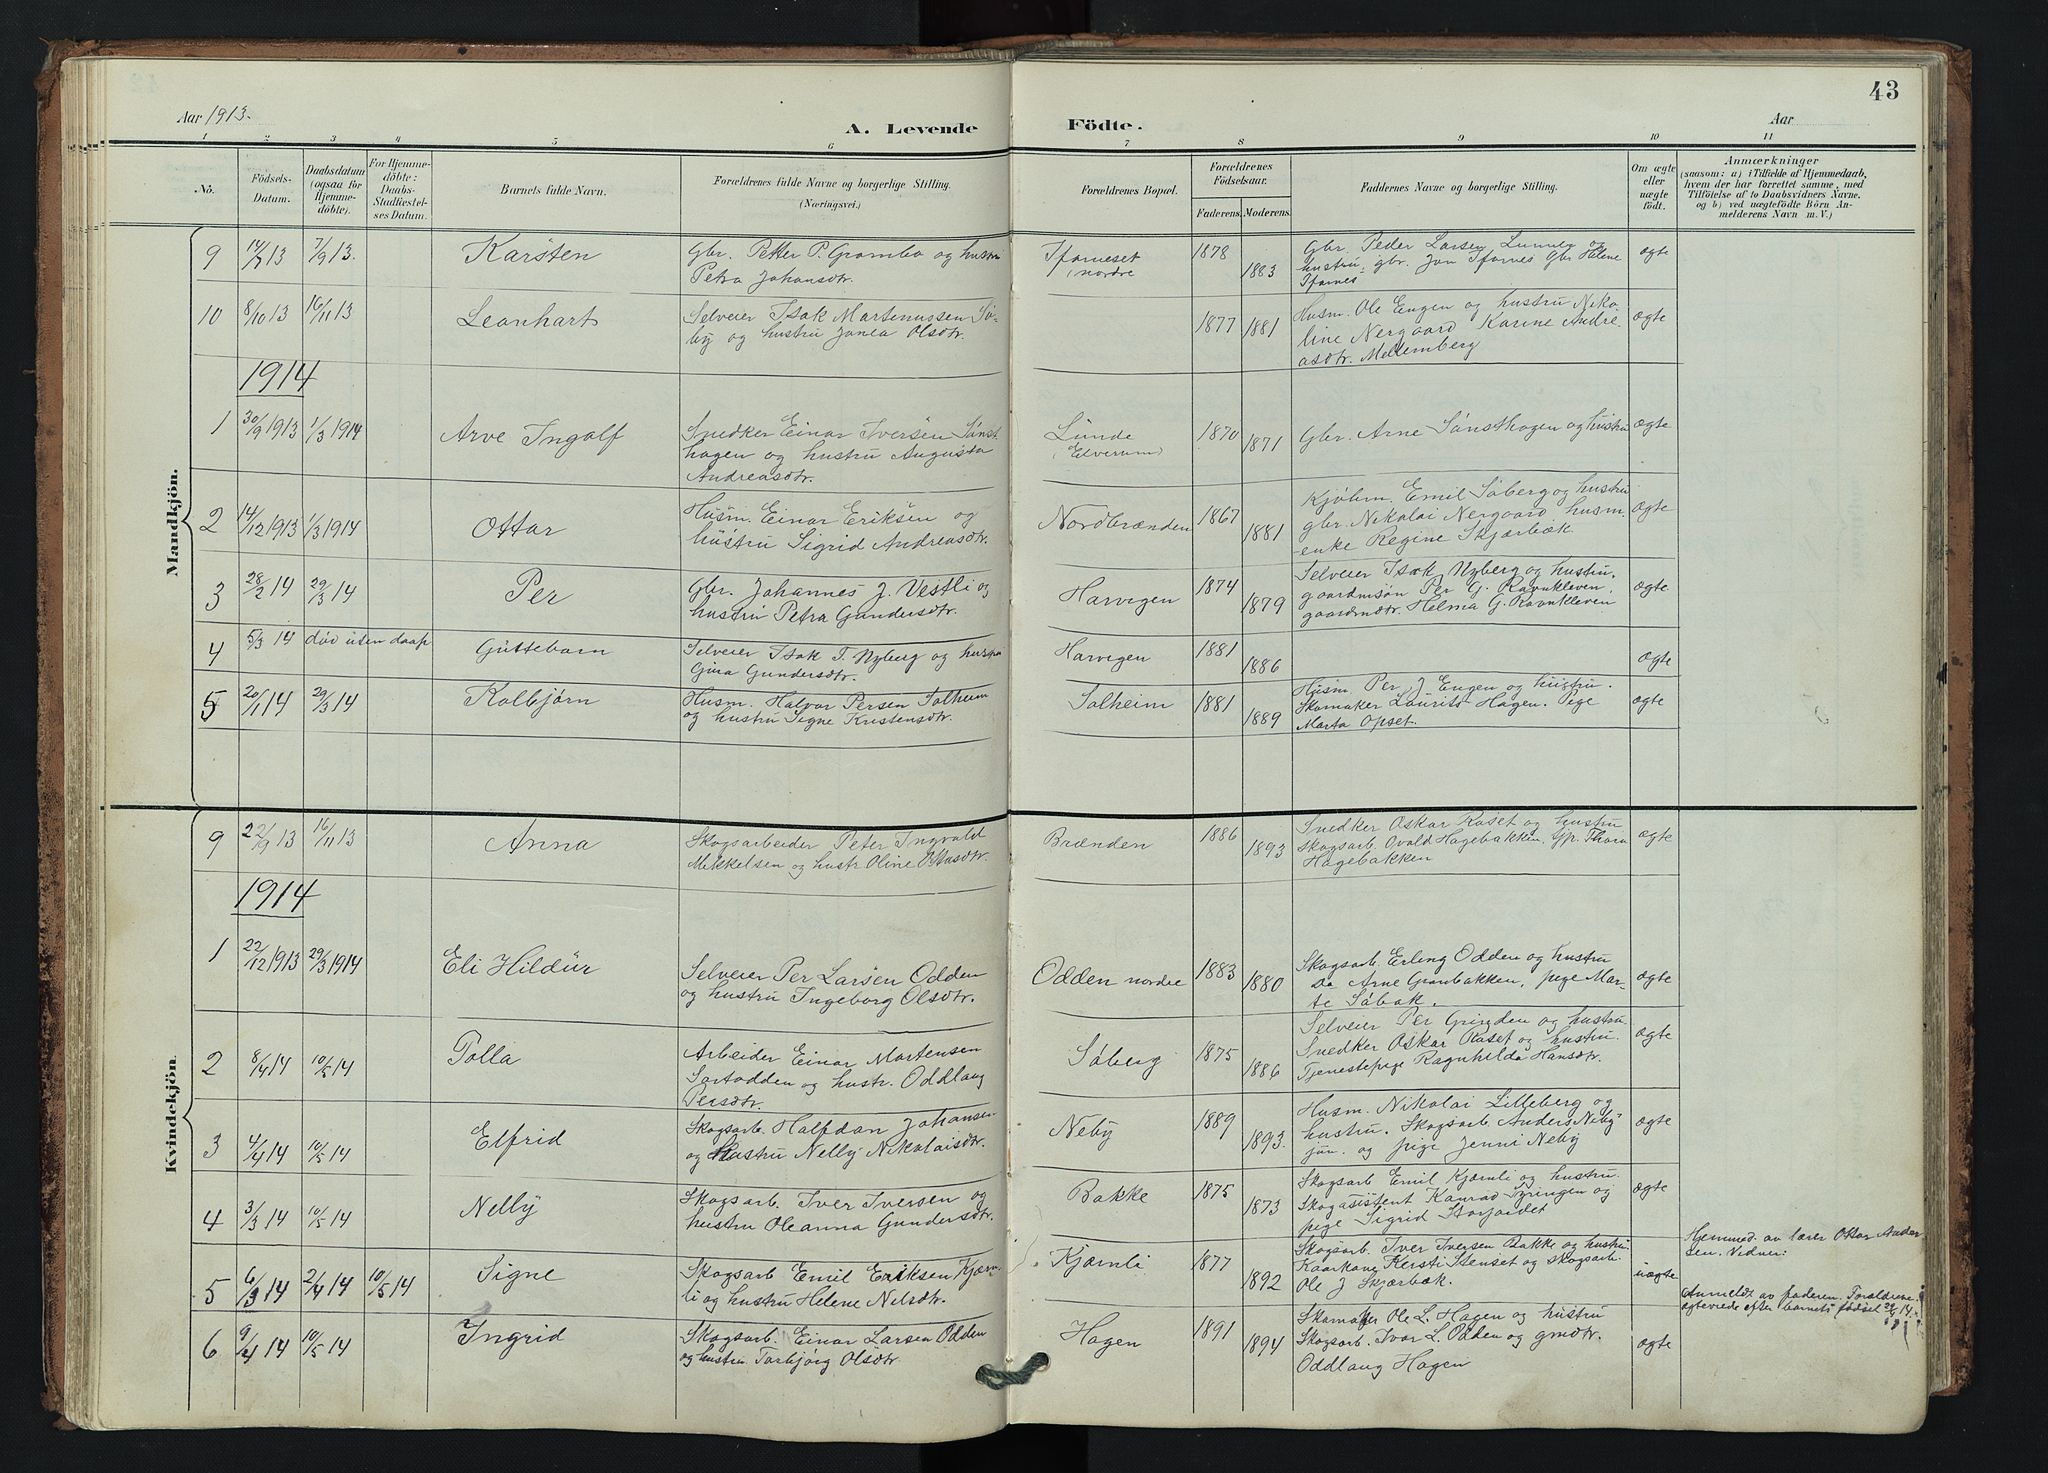 43
Aar 1913.
A. Levende Födte.
Aar
1 2 3 4 5 6 7 8 9 10 11
No.
Födsels-Datum.
Daabsdatum (ogsaa for Hjemme-döbte).
For Hjemme-döbte: Daabs-Stadfæstel-ses Datum.
Barnets fulde Navn.
Forældrenes fulde Navne og borgerlige Stilling.
(Næringsvei.)
Forældrenes Bopæl.
Forældrenes Födselsaar.
Faderens. Moderens.
Faddernes Navne og borgerlige Stilling.
Om ægte eller uægte födt.
Anmærkninger
(saasom: a) i Tilfælde af Hjemmedaab,
hvem der har forrettet samme, med
Tilföielse af to Daabsvidners Navne,
og b) ved uægtefödte Börn An-
melderens Navn m. V.)
Mandkjön.
9 14/7 13 7/9 13. Karsten
Gbr. Petter P. Grambo og hustru
Petra Johansdtr.
nordre
1878 1883
Gbr. Peder Larsen og
hustru, gbr. Jon Gbr Helene
ægte
10 8/10 13 16/11 13 Leonhart
Selveier Isak Martenussen Sö-
by og hustru Janea Olsdtr.
1877 1881
Husm. Ole Engen og hustru Niko-
line Nergaard Karine Andre-
asdtr. Mellemberg
ægte
1914
1 30/9 1913 1/3 1914 Arve Ingolf
Snedker Einar Iversen Sønst-
hagen og hustru Augusta
Andreasdtr.
Lunde
(Elverum)
1870 1871
Gbr. Arne Sønsthagen og hustru
ægte
2 14/12 1913 1/3 1914 Ottar
Husm. Einar Eriksen og
hustru Sigrid Andreasdtr.
Nordbrænden
1867 1881
Kjøbm. Emil Søberg og hustru
gbr. Nikolai Nergaard husm.
enke Regine Skjærbæk.
ægte
3 28/2 14 29/3 14 Per
Gbr. Johannes J. Vestli og
hustru Petra Gundersdtr.
Harvigen
1874 1879
Selveier Isak Nyberg og hustru,
gaardmsøn Per G. Ravnkleven,
gaardmdtr. Helma G. Ravnkleven
ægte
4 5/3 14 død uten daap Guttebarn
Selveier Isak T. Nyberg og hustru
Gina Gundersdtr.
Harvigen
1881 1886
ægte
5 20/1 14 29/3 14 Kolbjørn
Husm. Halvor Persen Solheim
og hustru Signe Kristensdtr.
Solheim
1881 1889
Husm. Per J Engen og hustru.
Skomaker Laurits Hagen. Pige
Marta Opset.
ægte
Kvindekjön
9 22/9 13 16/11 13 Anna
Skogsarbeider Peter Ingvald
Mikkelsen og hustr Oline
Brænden
1886 1893
Snedker Oskar Raset og hustru
Skogsarb. Ovald Hagebakken. Gp. Thora
Hagebakken
ægte
1914
1 22/12 1913 29/3 1914 Eli Hildur
Selveier Per Larsen Odden
og hustru Ingeborg Olsdtr.
Odden nordre
1883 1880
Skogsarb. Erling Odden og hustru
Do Arne Granbakken, pige Mar-
te Søbak.
ægte
2 8/4 14 10/5 14 Polla
Arbeider Einar Martensen
Sortodden og hustr. Oddlaug
Persdtr.
Søberg
1875 1886
Selveier Per Grinden og hustru.
Snedker Oskar Raset og hustru.
Tjenestepige Ragnhilda Hansdtr.
ægte
3 4/4 14 10/5 14 Elfrid
Skogsarb. Halfdan Johansen
og Hustru Nelly Nikolaisdtr.
Neby
1889 1893.
Husm. Nikolai Lilleberg og
hustru. Skogsarb. Anders Neby
jun. og pige Jenni Neby
ægte
4 3/3 14 10/5 14 Nelly
Skogsarb. Iver Iversen og
hustru Oleanna Gundersdtr.
Bakke
1875 1873
Skogsarb Emil Kjærnli og hustru.
Skogasistent Konrad Tyringen og
pige Sigrid
ægte
5 6/3 14 2/4 14 10/5 14 Signe
Skogsarb Emil Eriksen Kjærn-
li og hustru Helene Nilsdtr.
Kjærnli
1877 1892
Skogsarb. Iver Iversen Bakke og hustru.
Kerstí Stenset og skogsarb.
Ole J Skjærbæk.
uægte
Hjemmed. av lærer Ottar Ander
sen.
Anmeldt av faderen. Forældrene
egteviede efter barnets fødsel
6 9/4 14 10/5 14 Ingrid
Skogsarb. Einar Larsen Odden
og hustru Torbjørg Olsdtr.
Hagen
1891 1894
Skomager Ole L. Hagen og hustru
Skogsarb. Ivar L. Odden og gmdtr.
Oddlaug Hagen
ægte